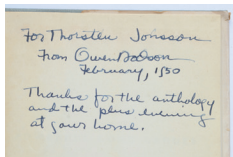 For Thorsten Jonsson
From Owen Dodson
February, 1950
Thanks for the anthology
and the plus evening
at your home.